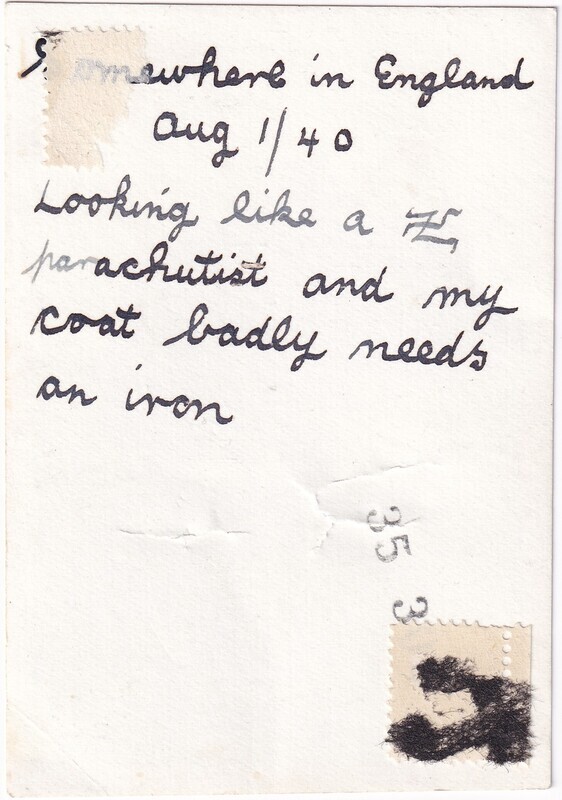 Somewhere in England
Aug 1/40
Looking like a
parachutist and my
coat badly needs
an iron
35 3